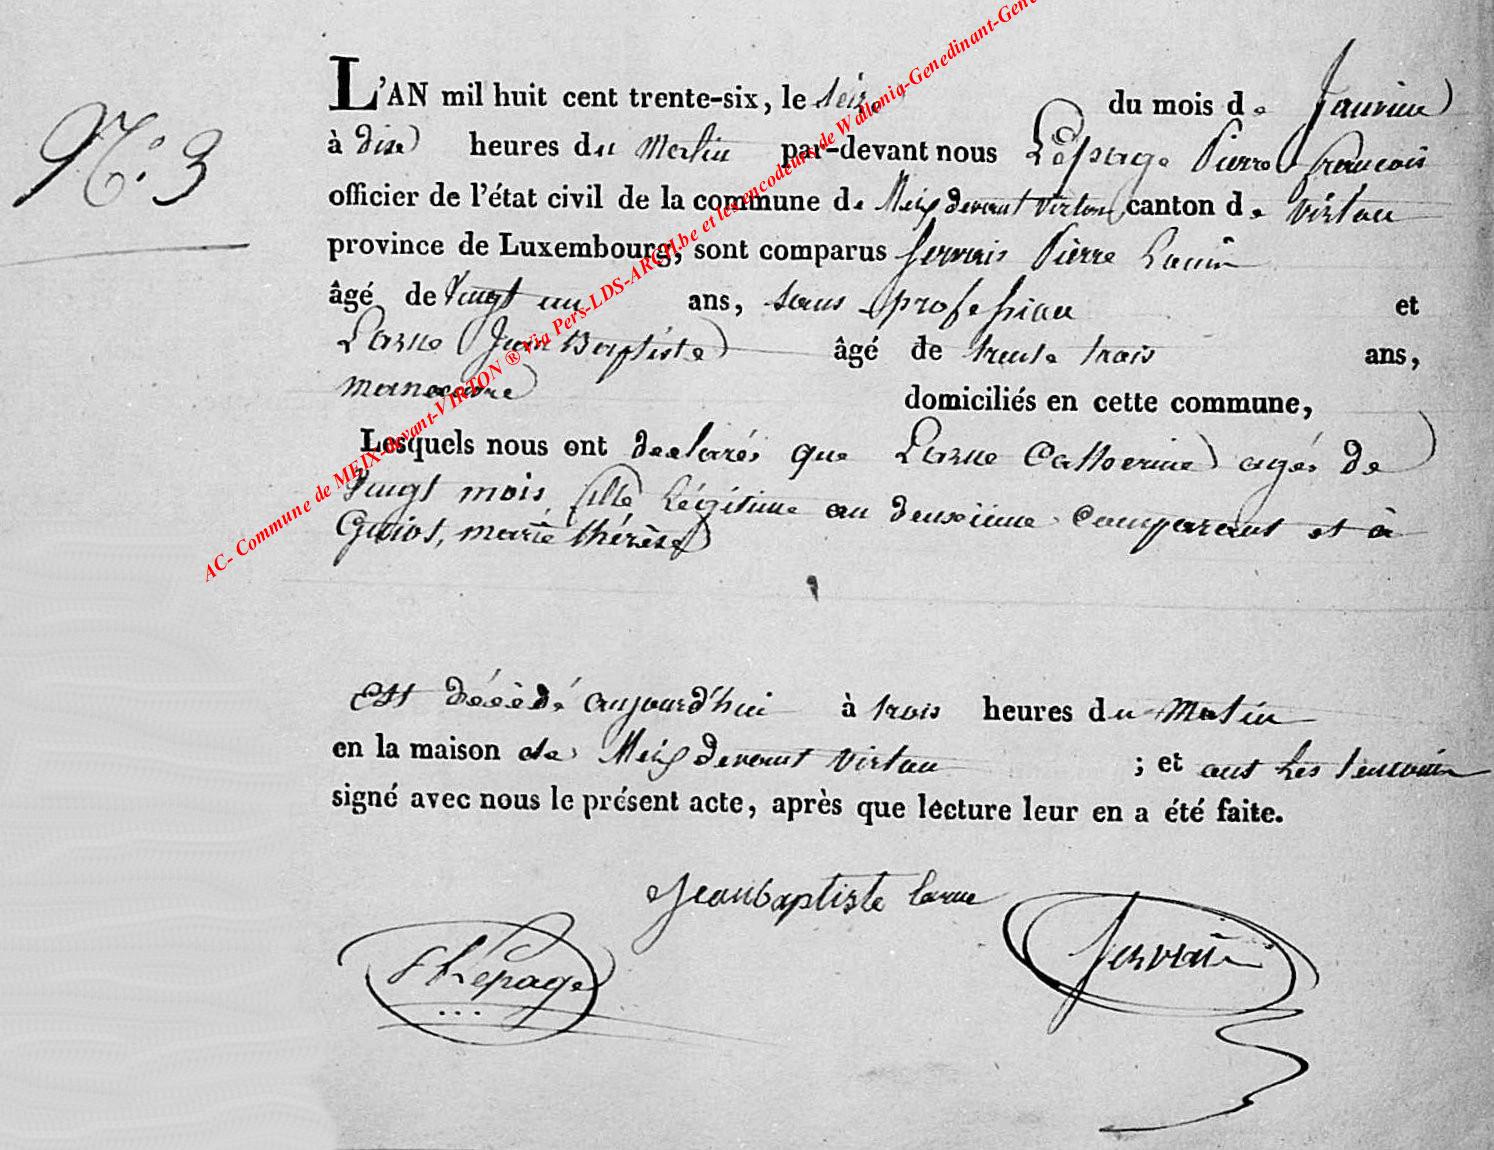 N.° 3
L'AN mil huit cent trente-six, le seize du mois de Janvier
à dix heures du Matin par-devant nous Lépage Pierre françois
officier de l'état civil de la commune de Meix devant virton canton de virton
province de Luxembourg, sont comparus Servais Pierre Louis
âgé de Vingt un ans, sans profession et
Larue Jean Baptiste âgé de trente trois ans,
manoeuvre domiciliés en cette commune,
Lesquels nous ont declarés que Larue Catherine agés de
Vingt mois, fille légitime au deuxieme comparant et à
Guiot, marie thérèse
Est décédé aujourd'hui à trois heures du Matin
en la maison de Meix devant virton ; et ont les temoin
signé avec nous le présent acte, après que lecture leur en a été faite.
Jeanbaptiste larue
Lépage
Servais
AC- Commune de MEIX-devant-VIRTON ® Via Pers-LDS-ARCH.be et les encodeurs de Wallonia-Genedinant-Gene